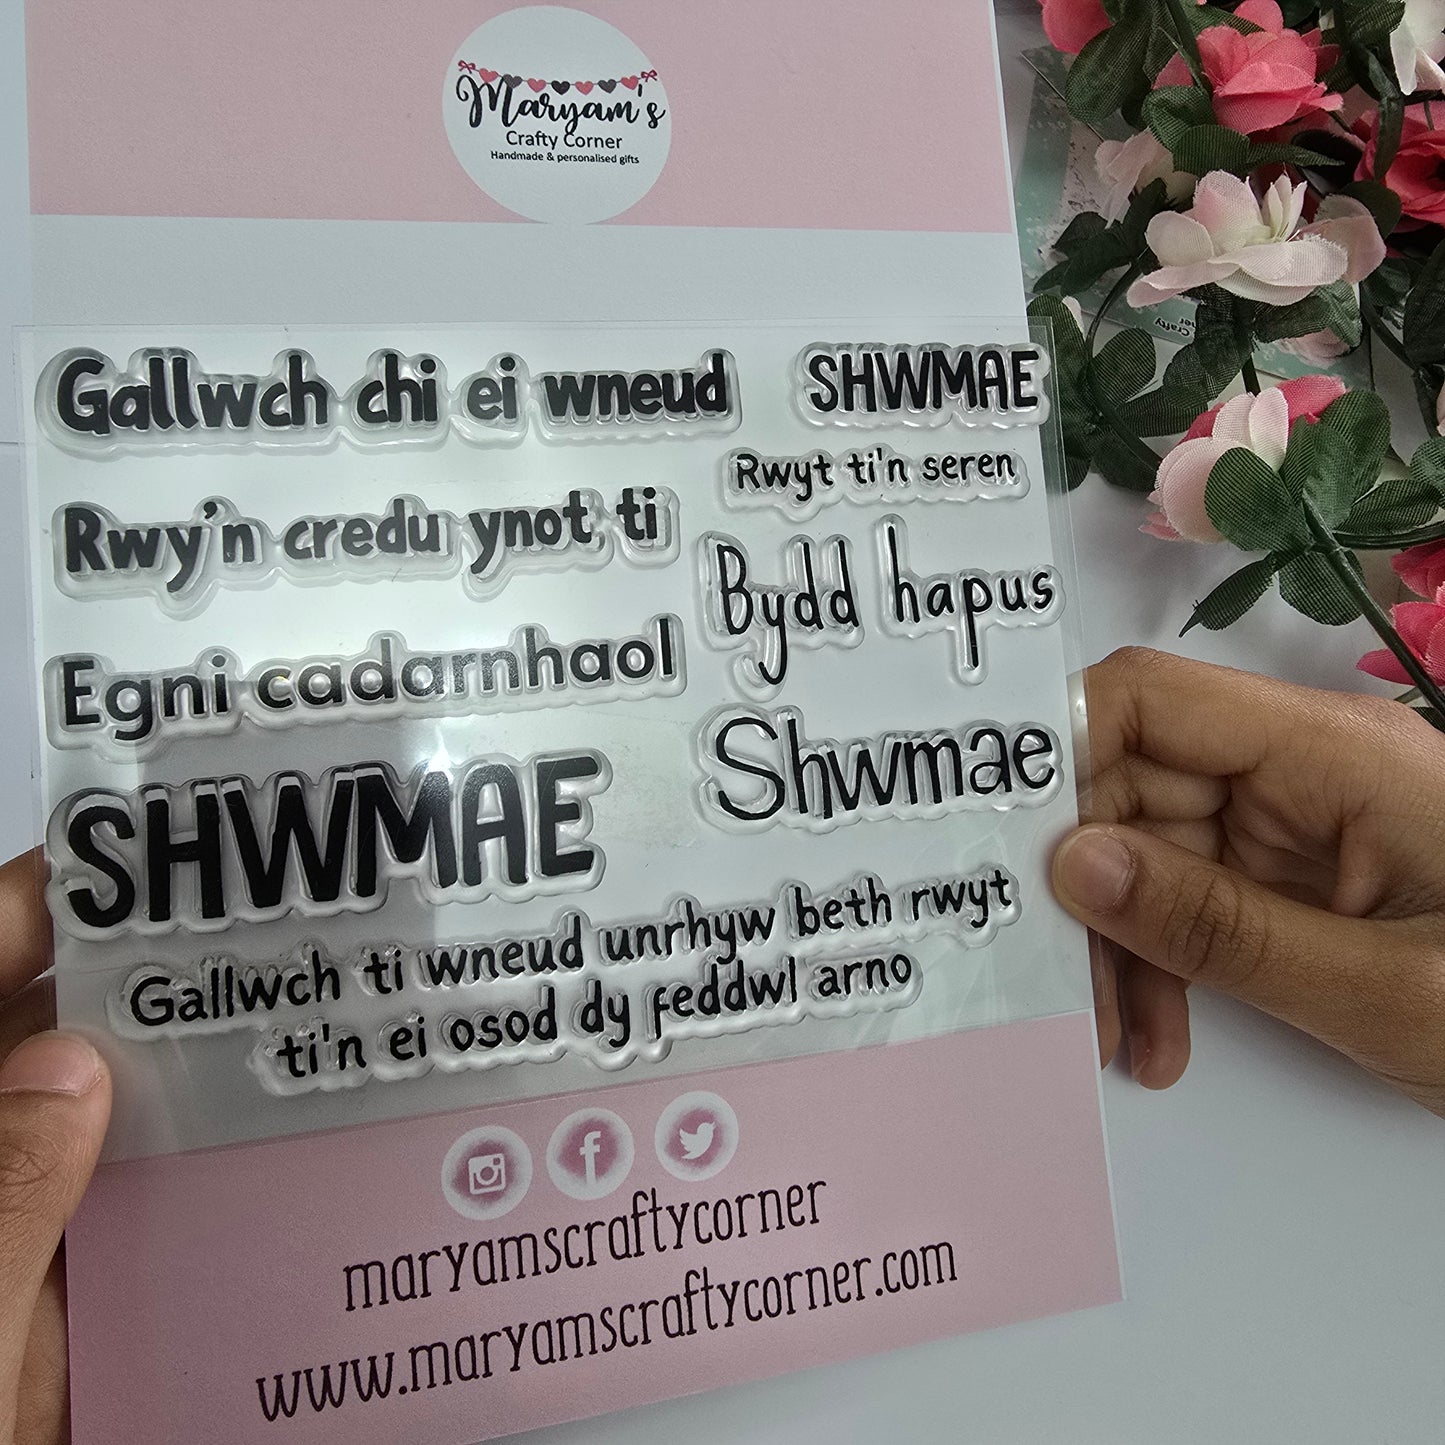 Maryam's
Crafty Corner
Handmade & personalised gifts
Gallwch chi ei wneud
SHWMAE
Rwyt ti'n seren
Rwy'n credu ynot ti
Bydd hapus
Egni cadarnhaol
Shwmae
SHWMAE
Gallwch ti wneud unrhyw beth rwyt
ti'n ei osod dy feddwl arno
maryamscraftycorner
www.maryamscraftycorner.com
Crafty
Corner